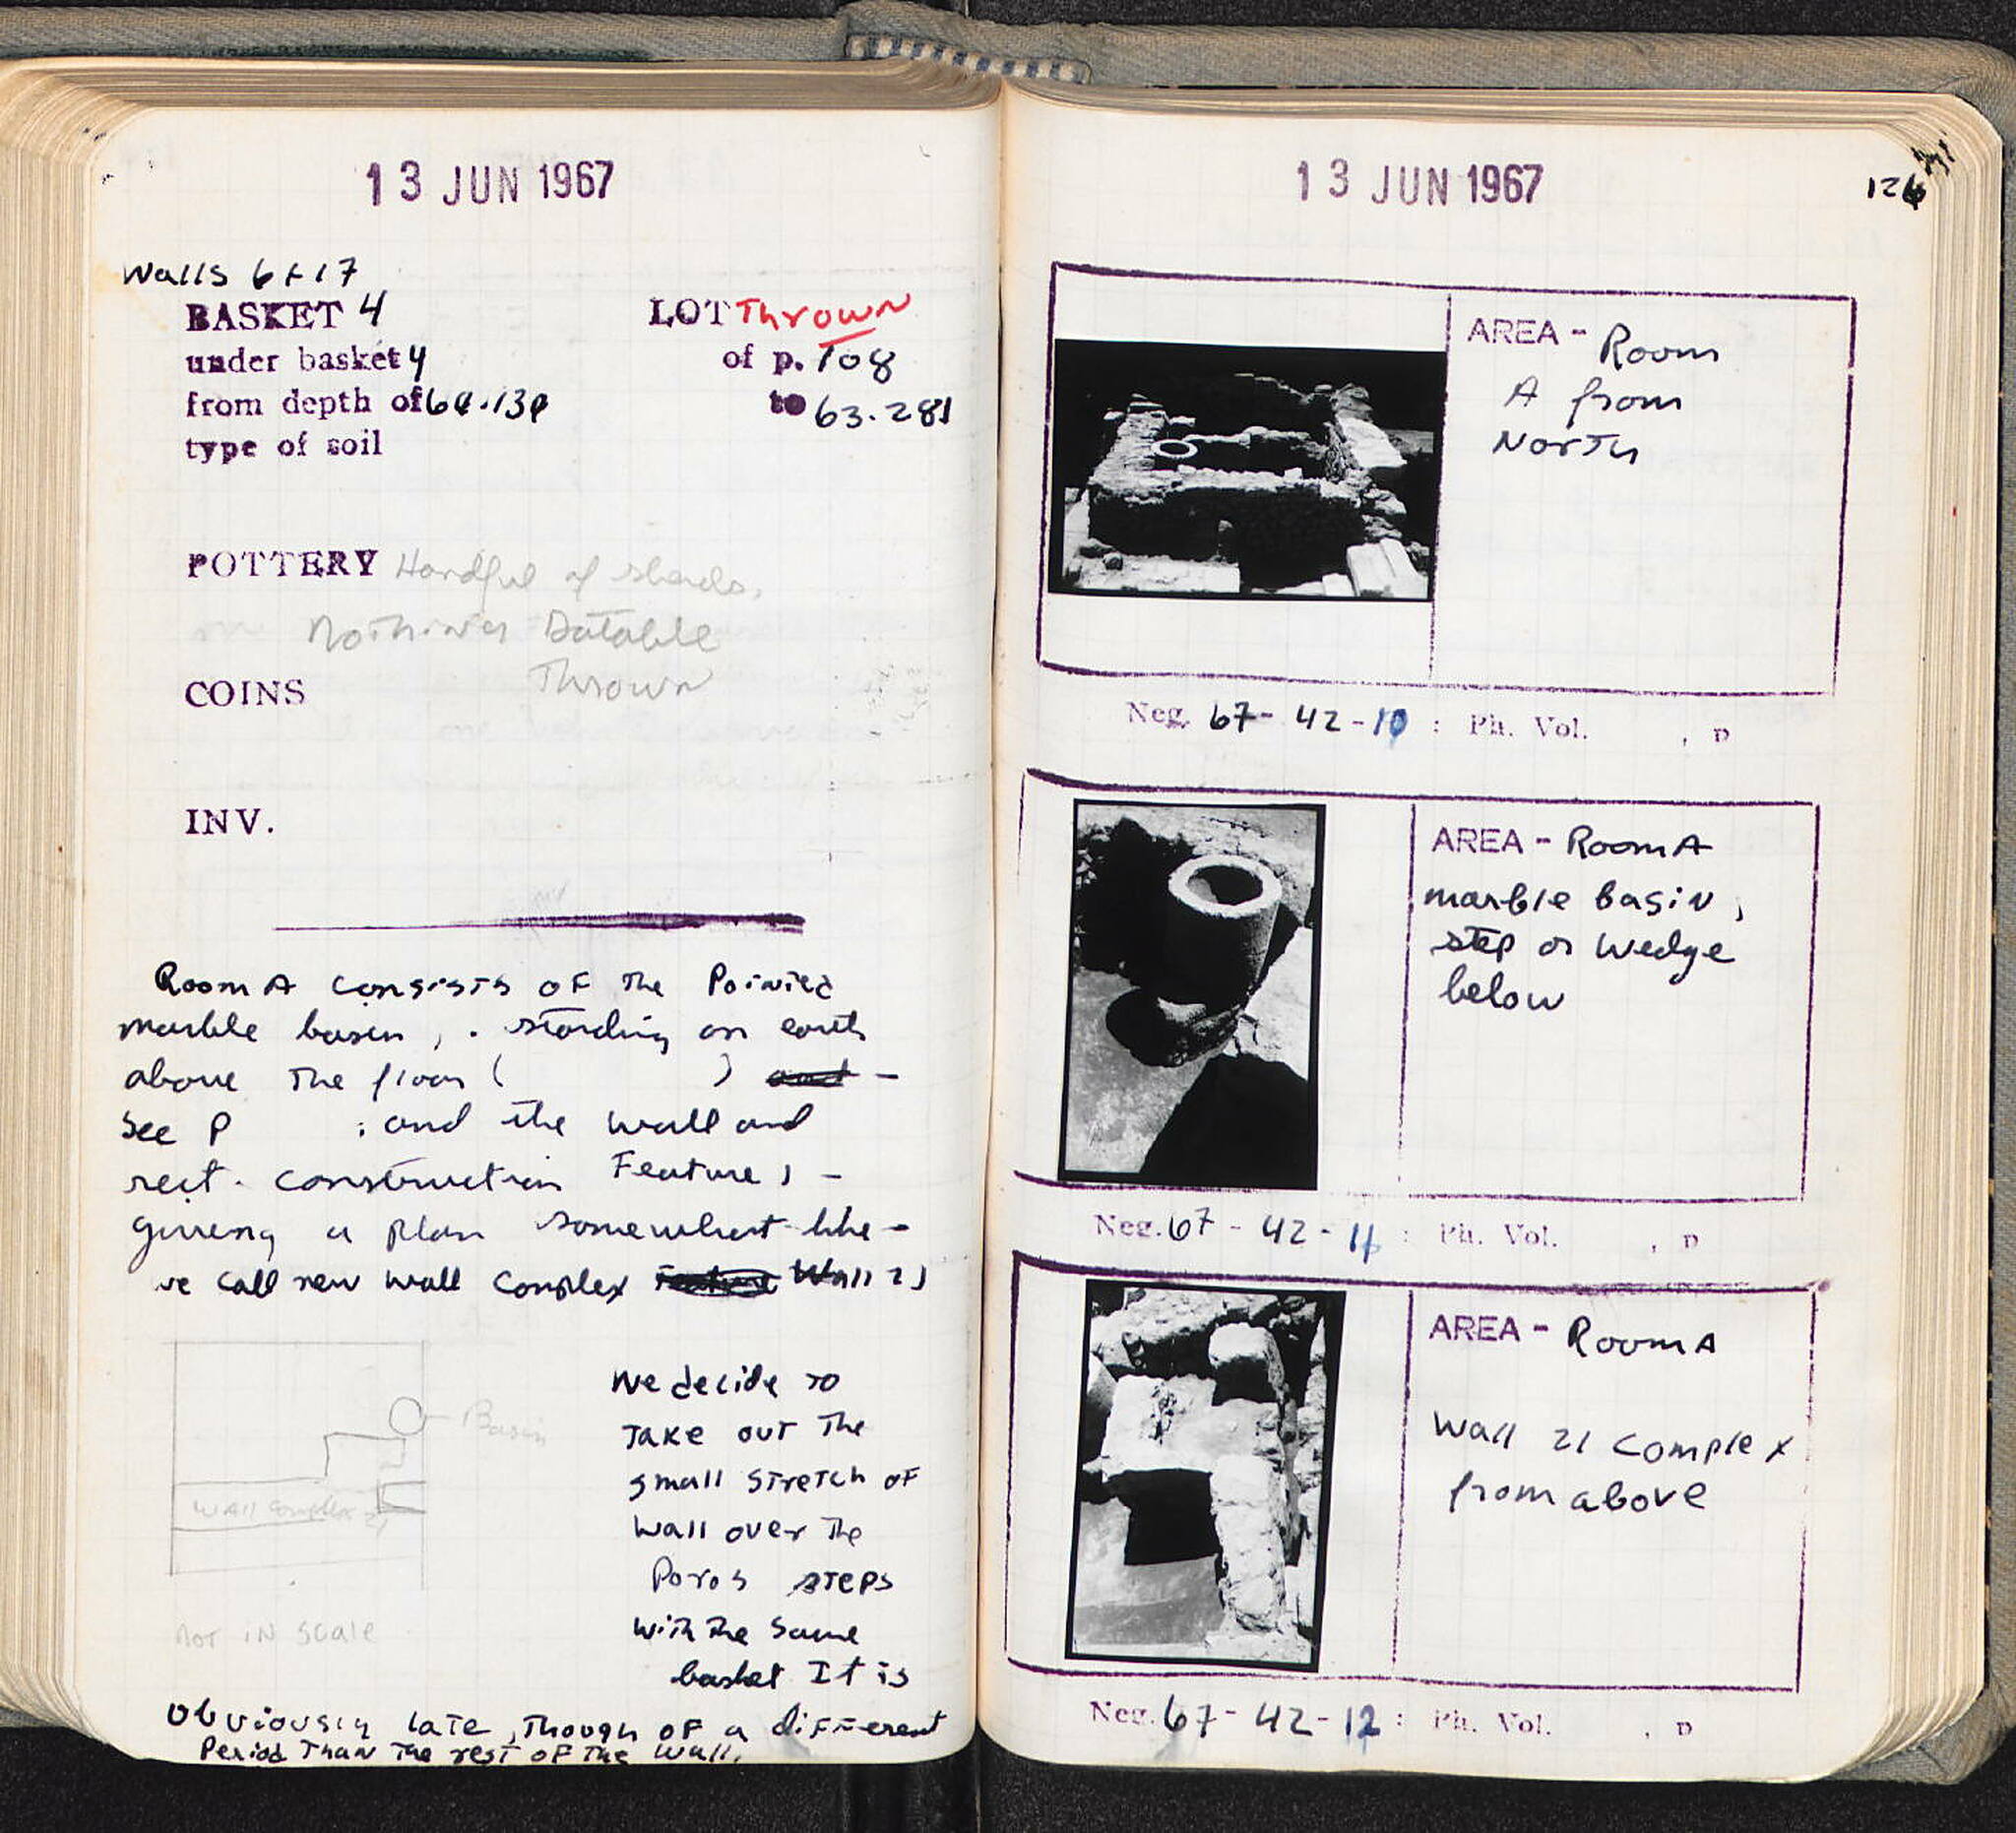 13 JUN 1967
Walls 6 + 17
BASKET 4
LOT Thrown
under basket 4
of p. 108
from depth of
to 63.281
type of soil
POTTERY Handful of sherds,
Nothing Datable
Thrown
COINS
INV.
Room A consists of the Pointed
marble basin, . standing on earth
above the floor ( ) and -
See P ; and the wall and
rect. construction Feature 1 -
giving a plan somewhat like -
we call new wall complex Feature Wall 21
Basin
Wall Complex 21
Not in scale
We decide to
Take out the
small stretch of
wall over the
Poros steps
with the same
basket It is
Obviously late, though of a different
Period Than The rest of the wall.
13 JUN 1967
126
AREA - Room
A from
North
Neg. 67 - 42 - 10 : Ph. Vol. , p
AREA - Room A
marble basin,
step or wedge
below
Neg. 67 - 42 - 11 : Ph. Vol. , p
AREA - Room A
Wall 21 Complex
from above
Neg. 67 - 42 - 12 : Ph. Vol. , p